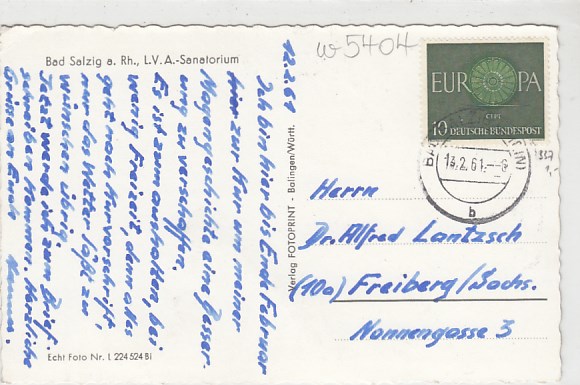 Bad Salzig a. Rh., L.V.A.-Sanatorium
w 5404
EUROPA
CEPT
10 DEUTSCHE BUNDESPOST
13.2.61.--8
b
12.2.61
Ich bin hier bis Ende Februar
hier zur Kur um meiner
Magengeschichte eine Besser-
ung zu verschaffen.
Es ist zum aushalten, bei
wenig Freizeit, denn alles
geht nach Kurvorschrift,
nur das Wetter läßt zu
wünschen übrig.
Jetzt werde ich zum Brief-
schreiben kommen. Herzliche
Grüsse an Euch
Verlag FOTOPRINT - Balingen/Württ.
Herrn
Dr. Alfred Lantzsch
(10a) Freiberg/Sachs.
Nonnengasse 3
Echt Foto Nr. I. 224 524 Bi